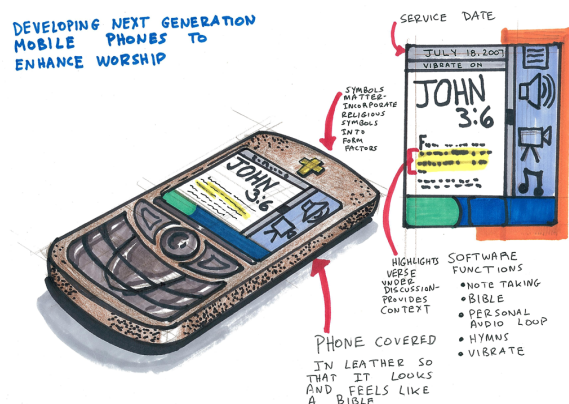 DEVELOPING NEXT GENERATION
MOBILE PHONES TO
ENHANCE WORSHIP
SERVICE DATE
JULY 18, 2007
VIBRATE ON
JOHN
3:6
SYMBOLS
MATTER-
INCORPORATE
RELIGIOUS
SYMBOLS
INTO
FORM
FACTORS
JOHN
3:6
HIGHLIGHTS
VERSE
UNDER
DISCUSSION-
PROVIDES
CONTEXT
SOFTWARE
FUNCTIONS
• NOTE TAKING
• BIBLE
• PERSONAL
AUDIO LOOP
• HYMNS
• VIBRATE
PHONE COVERED
IN LEATHER SO
THAT IT LOOKS
AND FEELS LIKE
A BIBLE